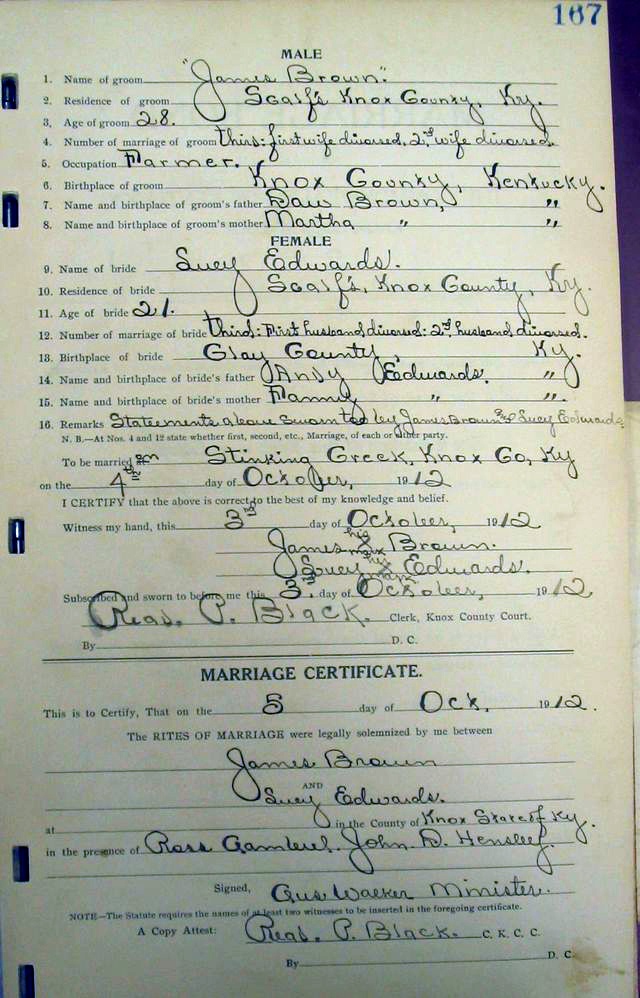 167
MALE
1. Name of groom "James Brown".
2. Residence of groom Scalf's Knox County, Ky.
3. Age of groom 28.
4. Number of marriage of groom third: first wife divorsed, 2nd wife divorsed.
5. Occupation Farmer.
6. Birthplace of groom Knox County, Kentucky.
7. Name and birthplace of groom's father Daw Brown, "
8. Name and birthplace of groom's mother Martha " "
FEMALE
9. Name of bride Sucy Edwards.
10. Residence of bride Scalf's, Knox County, Ky.
11. Age of bride 21.
12. Number of marriage of bride third: First husband divorsed: 2nd husband divorsed.
13. Birthplace of bride Clay County, Ky.
14. Name and birthplace of bride's father Andy Edwards. "
15. Name and birthplace of bride's mother Fanny " ".
16. Remarks Statements above sworn too by James Brown and Sucy Edwards
N. B.—At Nos. 4 and 12 state whether first, second, etc., Marriage, of each or other party.
To be married on Stinking Creek, Knox Co, Ky
on the 4th day of October, 1912
I CERTIFY that the above is correct to the best of my knowledge and belief.
Witness my hand, this 3rd day of October, 1912
James his X mark Brown.
Sucy his X mark Edwards.
Subscribed and sworn to before me this 3rd. day of October, 1912
Read. P. Black. Clerk, Knox County Court.
By D. C.
MARRIAGE CERTIFICATE.
This is to Certify, That on the 5 day of Oct, 1912.
The RITES OF MARRIAGE were legally solemnized by me between
James Brown
AND
Sucy Edwards.
at in the County of Knox State of Ky.
in the presence of Ross Gambrel. John D. Hensley.
Signed, Gus Walker Minister.
NOTE—The Statute requires the names of at least two witnesses to be inserted in the foregoing certificate.
A Copy Attest: Read. P. Black. C. K. C. C.
By D. C.